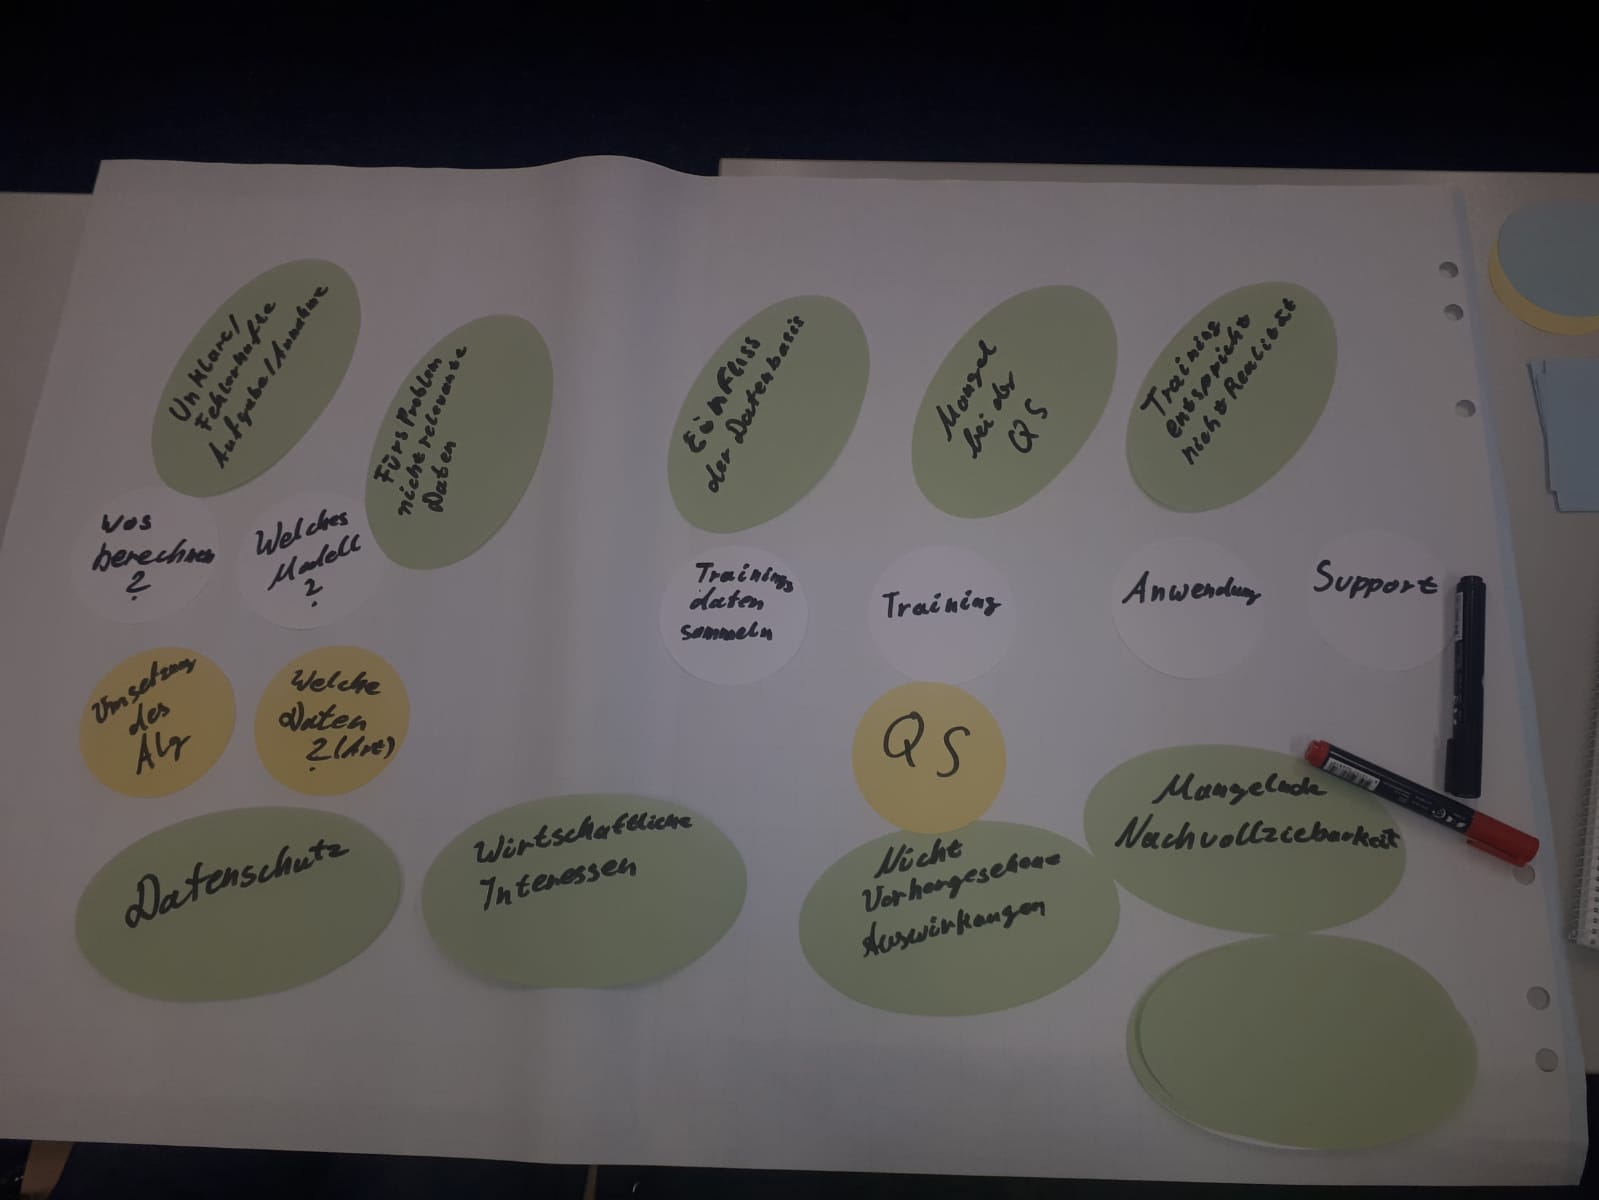 Unklare/
Fehlerhafte
Aufgabe/Annahme
Fürs Problem
nicht relevante
Daten
Einfluss
der Datenbasis
Mangel
bei der
QS
Training
entspricht
nicht Realität
Was
berechnen
?
Welches
Modell
?
Trainings
daten
sammeln
Training
Anwendung
Support
Umsetzung
des
Alg
Welche
Daten
? (Art)
QS
Datenschutz
Wirtschaftliche
Interessen
Nicht
Vorhergesehene
Auswirkungen
Mangelnde
Nachvollziebarkeit